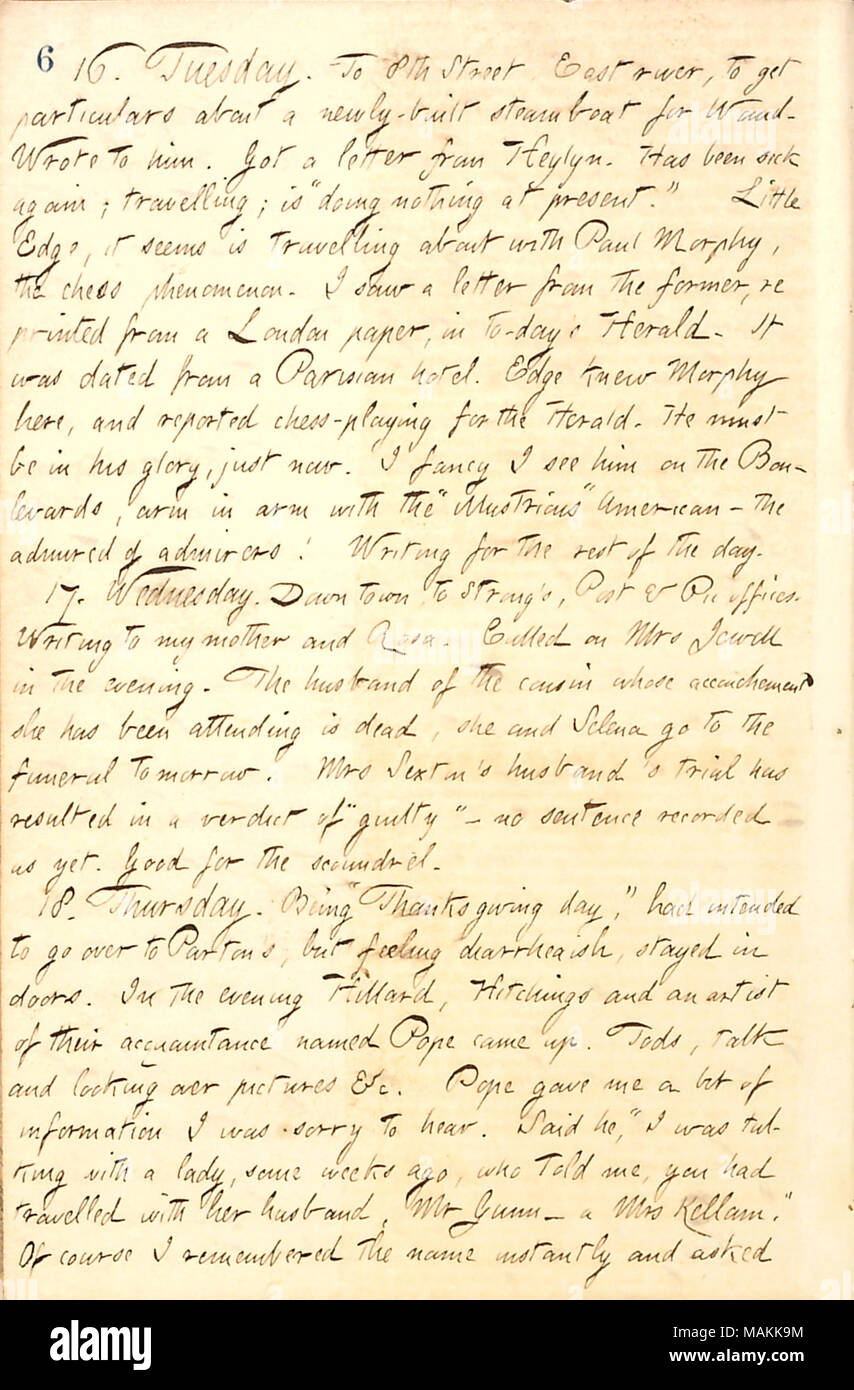 6
16. Tuesday. To 8th Street East river, to get
particulars about a newly-built steamboat for Waud.
Wrote to him. Got a letter from Heylyn. Has been sick
again; travelling; is "doing nothing at present." Little
Edge, it seems is travelling about with Paul Morphy,
the chess phenomenon. I saw a letter from the former, re
printed from a London paper, in to-day's Herald. It
was dated from a Parisian hotel. Edge knew Morphy
here, and reported chess-playing for the Herald. He must
be in his glory, just now. I fancy I see him on the Bou-
levards, arm in arm with the "illustrious" American — the
admired of admirers! Writing for the rest of the day.
17. Wednesday. Down town, to Strong's, Post & Pic offices.
Writing to my mother and Rosa. Called on Mrs Jewell
in the evening. The husband of the cousin whose accouchement
she has been attending is dead, she and Selena go to the
funeral tomorrow. Mrs Sexton's husband's trial has
resulted in a verdict of "guilty" — no sentence recorded
as yet. Good for the scoundrel.
18. Thursday. Being "Thanksgiving day," had intended
to go over to Parton's, but feeling diarrheaish, stayed in
doors. In the evening Hillard, Hitchings and an artist
of their acquaintance named Pope came up. Tods, talk
and looking over pictures &c. Pope gave me a bit of
information I was sorry to hear. Said he, "I was tal-
king with a lady, some weeks ago, who told me, you had
travelled with her husband, Mr Gunn — a Mrs Kellam."
Of course I remembered the name instantly and asked
alamy
Image ID: MAKK9M
www.alamy.com